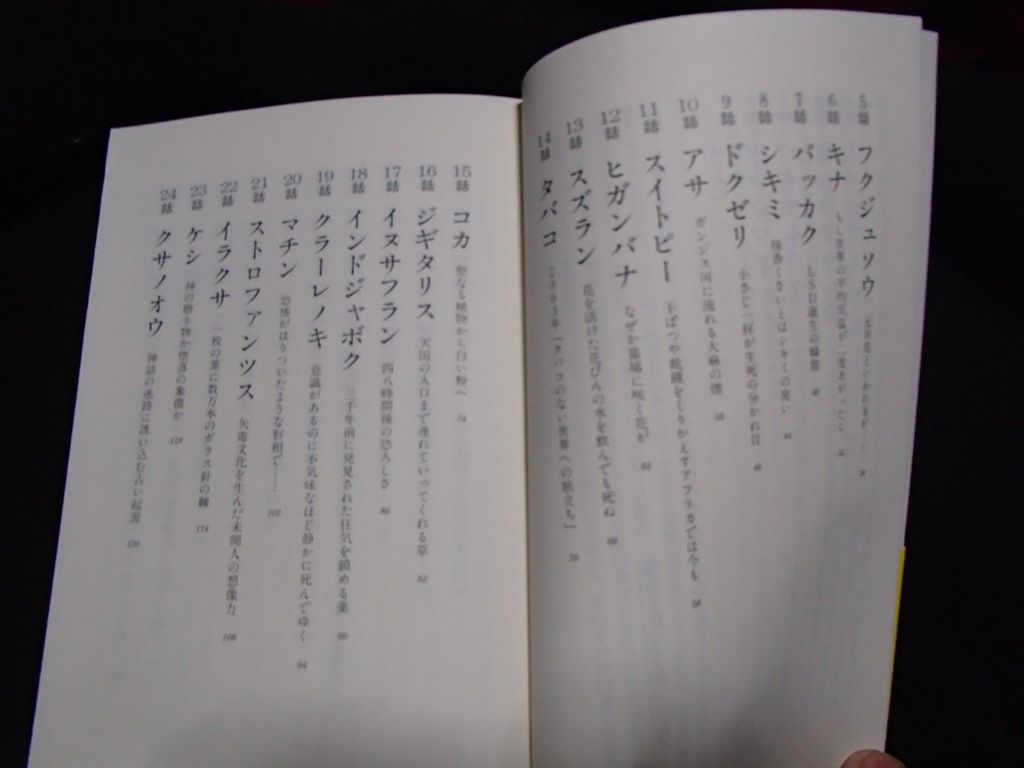 5話 フクジュソウ 元日花といわれるが……
6話 キナ もし世界の平均気温が一度あがったら
7話 バッカク LSD誕生の瞬間
8話 シキミ 抹香くさいとはシキミの臭い
9話 ドクゼリ 小さじ一杯が生死の分かれ目
10話 アサ ガンジス河に流れる大麻の煙 53
11話 スイトピー 干ばつや飢饉をくりかえすアフリカでは今も 58
12話 ヒガンバナ なぜか墓場に咲く花が 62
13話 スズラン 花を活けた花びんの水を飲んでも死ぬ 66
14話 タバコ 2003年「タバコのない世界への旅立ち」 70
15話 コカ 聖なる植物から白い粉へ
16話 ジギタリス 天国の入口まで連れていってくれる草 82
17話 イヌサフラン 四八時間後の恐ろしさ 86
18話 インドジャボク 三千年前に発見された狂気を鎮める薬 90
19話 クラーレノキ 意識があるのに不気味なほど静かに死んでゆく 94
20話 マチン 恐怖がはりついたような形相で…… 102
21話 ストロファンツス 矢毒文化を生んだ未開人の想像力 108
22話 イラクサ 一枚の葉に数万本のガラス針の棘 114
23話 ケシ 神の贈り物か堕落の象徴か 119
24話 クサノオウ 神話の迷路に誘い込む古い起源